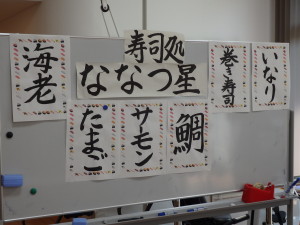 寿司処
ななつ星
いなり
巻き寿司
海老
鯛
サモン
たまご